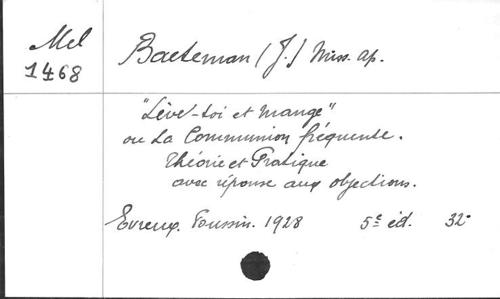 Mel
1468
Baeteman (J.) Miss. ap.
"Lève-toi et mange"
ou La Communion fréquente.
Théorie et Pratique
avec réponse aux objections.
Evreux. Poussin. 1928 5e éd. 32°